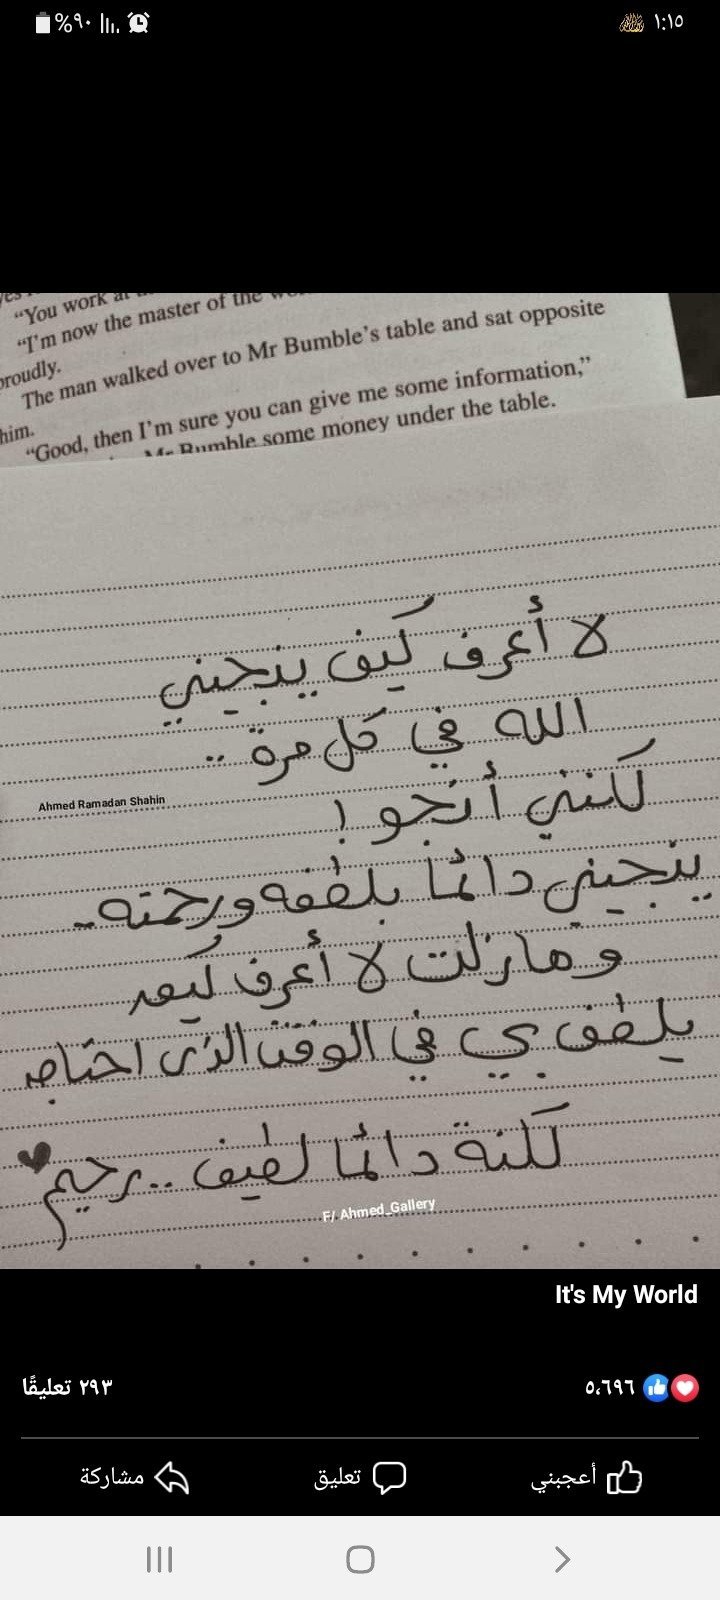 ١:١٥
%٩٠
"You work at
"I'm now the master of the
proudly.
The man walked over to Mr Bumble's table and sat opposite
him.
"Good, then I'm sure you can give me some information,"
Mr Bumble some money under the table.
لا أعرف كيف ينجيني
الله في كل مرة ..
لكنني أنجو !
Ahmed Ramadan Shahin
ينجيني دائما بلطفه ورحمته ..
ومازلت لا أعرف كيف
يلطف بي في الوقت الذى احتاجه
لكنة دائما لطيف .. رحيم
F/ Ahmed_Gallery
It's My World
٥،٦٩٦
٢٩٣ تعليقًا
أعجبني
تعليق
مشاركة